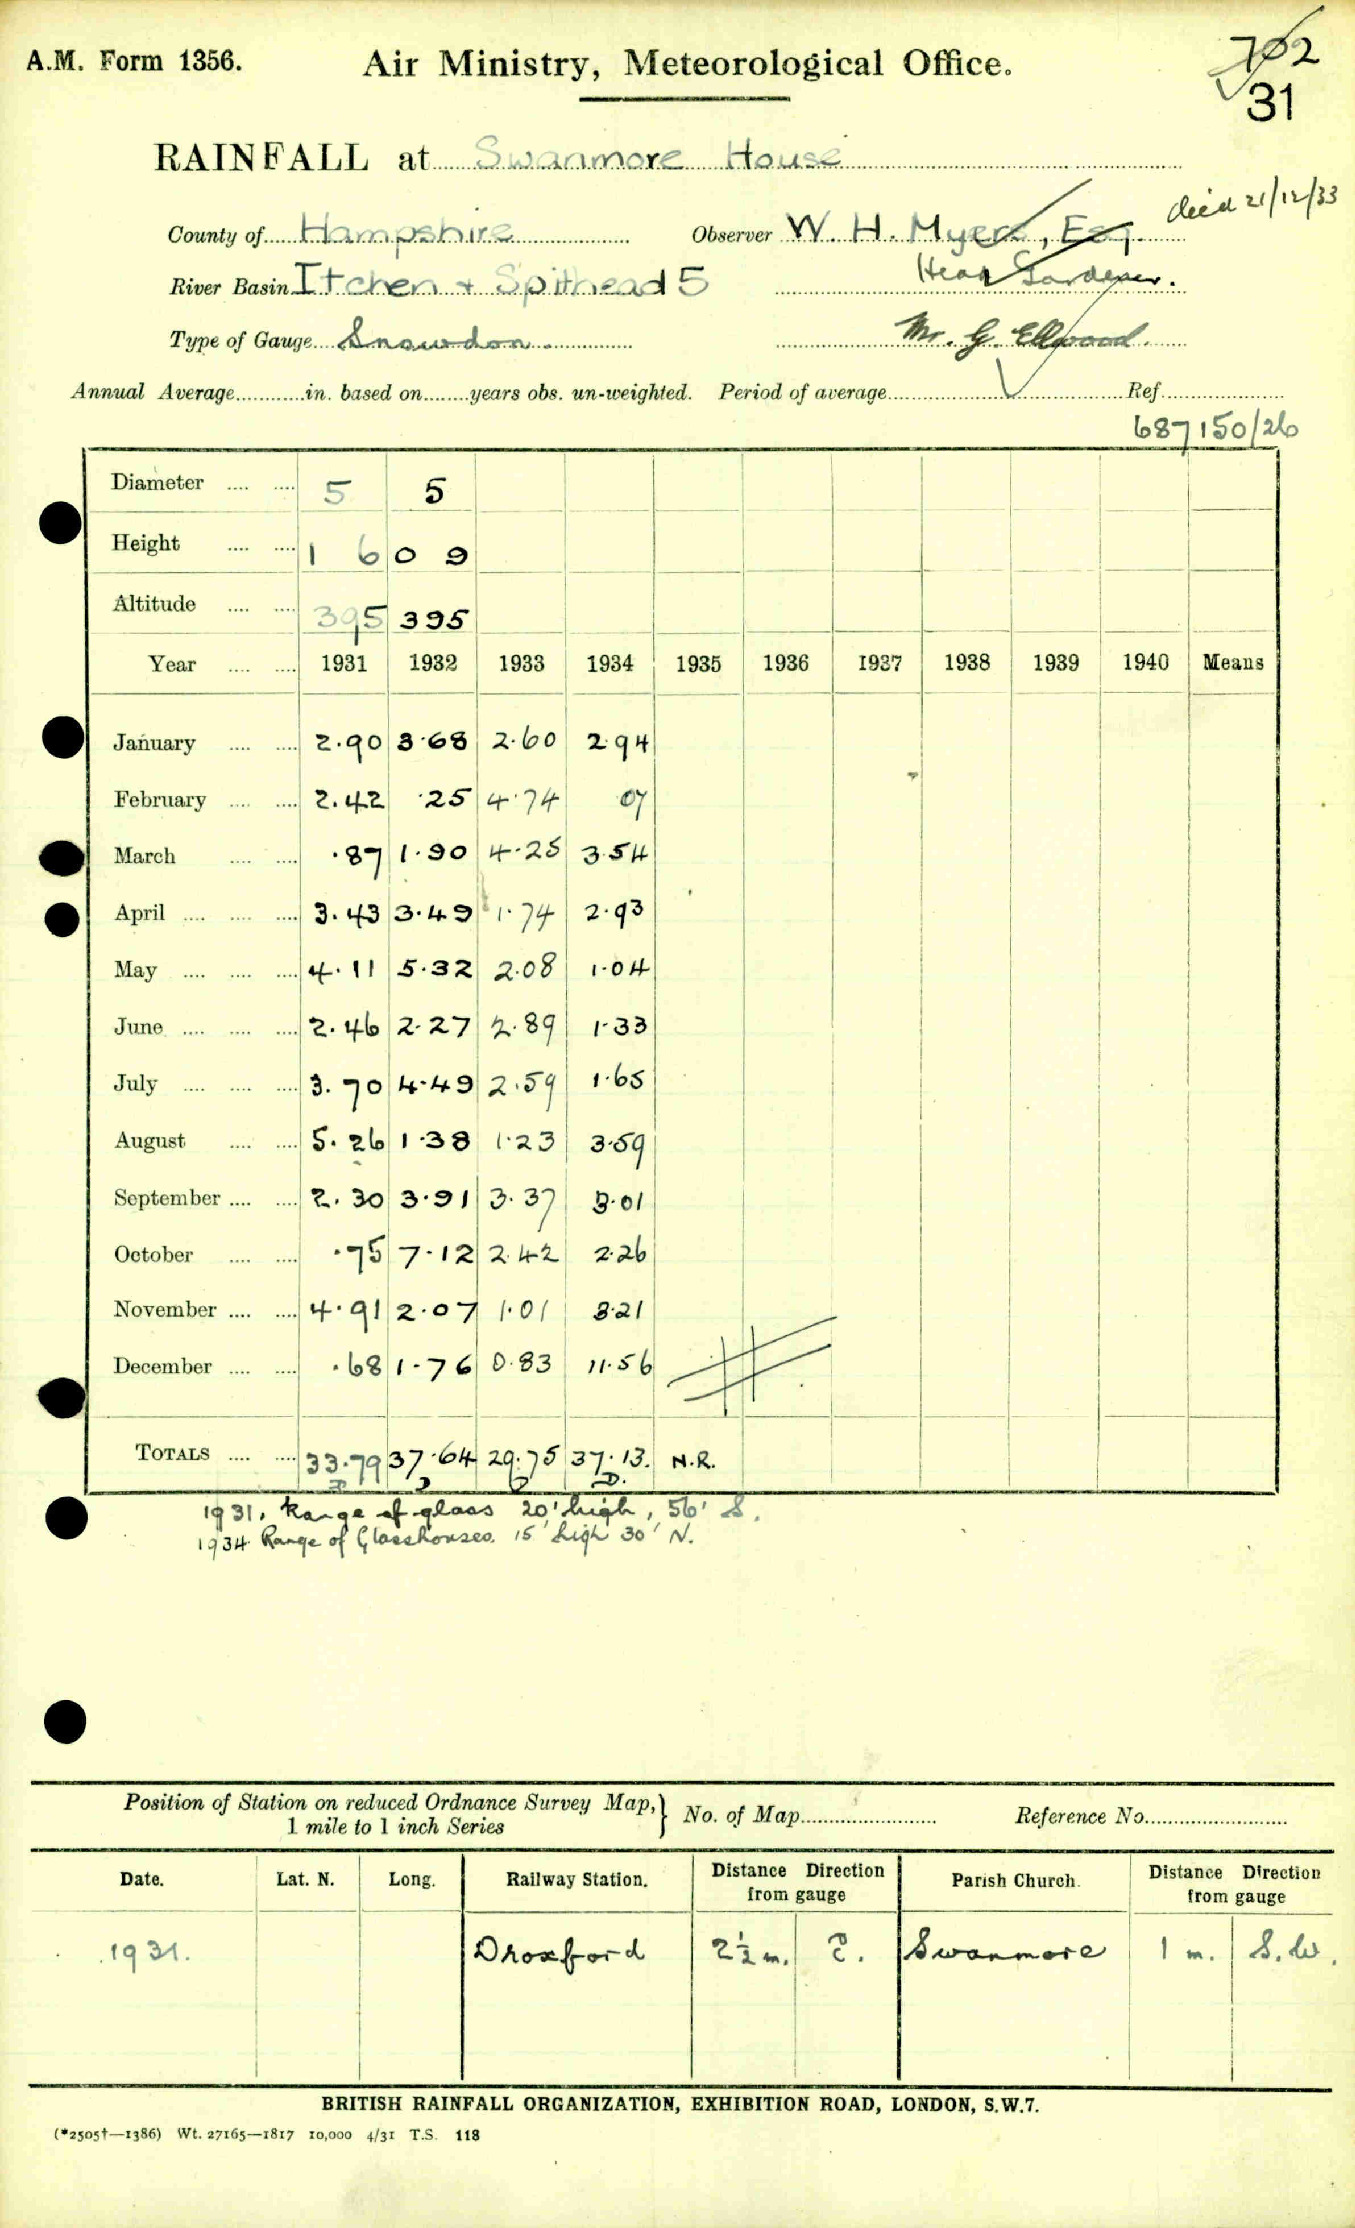 A.M. Form 1356. Air Ministry, Meteorological Office. 702
31
RAINFALL at Swanmore House
died 21/12/33
County of Hampshire Observer W. H. Myers, Esq.
River Basin Itchen + Spithead 5 Head Gardener.
Type of Gauge Snowdon. Mr. G. Ellwood.
Annual Average in. based on years obs. un-weighted. Period of average Ref
687150/26
Diameter .... .... 5 5
Height .... .... 1 6 0 9
Altitude .... .... 395 395
Year .... .... 1931 1932 1933 1934 1935 1936 1937 1938 1939 1940 Means
January .... .... 2.90 3.68 2.60 2.94
February .... .... 2.42 .25 4.74 07
March .... .... .87 1.90 4.25 3.54
April .... .... .... 3.43 3.49 1.74 2.93
May .... .... .... 4.11 5.32 2.08 1.04
June .... .... .... 2.46 2.27 2.89 1.33
July .... .... .... 3.70 4.49 2.59 1.65
August .... .... 5.26 1.38 1.23 3.59
September .... .... 2.30 3.91 3.37 3.01
October .... .... .75 7.12 2.42 2.26
November .... .... 4.91 2.07 1.01 3.21
December .... .... .68 1.76 0.83 11.56
TOTALS .... .... 33.79 37.64 29.75 37.13. N.R.
1931, Range of glass 20' high, 56' S.
1934 Range of Glasshouses. 15' high 30' N.
Position of Station on reduced Ordnance Survey Map,
1 mile to 1 inch Series
No. of Map Reference No.
Date. Lat. N. Long. Railway Station. Distance Direction from gauge Parish Church. Distance Direction from gauge
1931. Droxford 2½ m. E. Swanmore 1 m. S.W.
BRITISH RAINFALL ORGANIZATION, EXHIBITION ROAD, LONDON, S.W.7.
(*2505†—1386) Wt. 27165—1817 10,000 4/31 T.S. 118